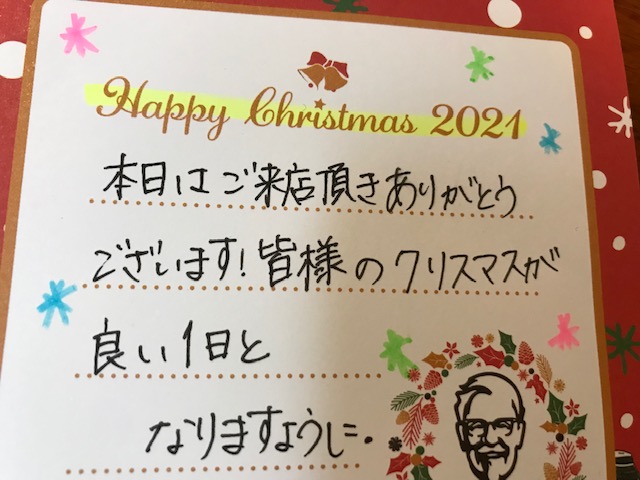 Happy Christmas 2021
本日はご来店頂きありがとう
ございます!皆様のクリスマスが
良い1日と
なりますように.